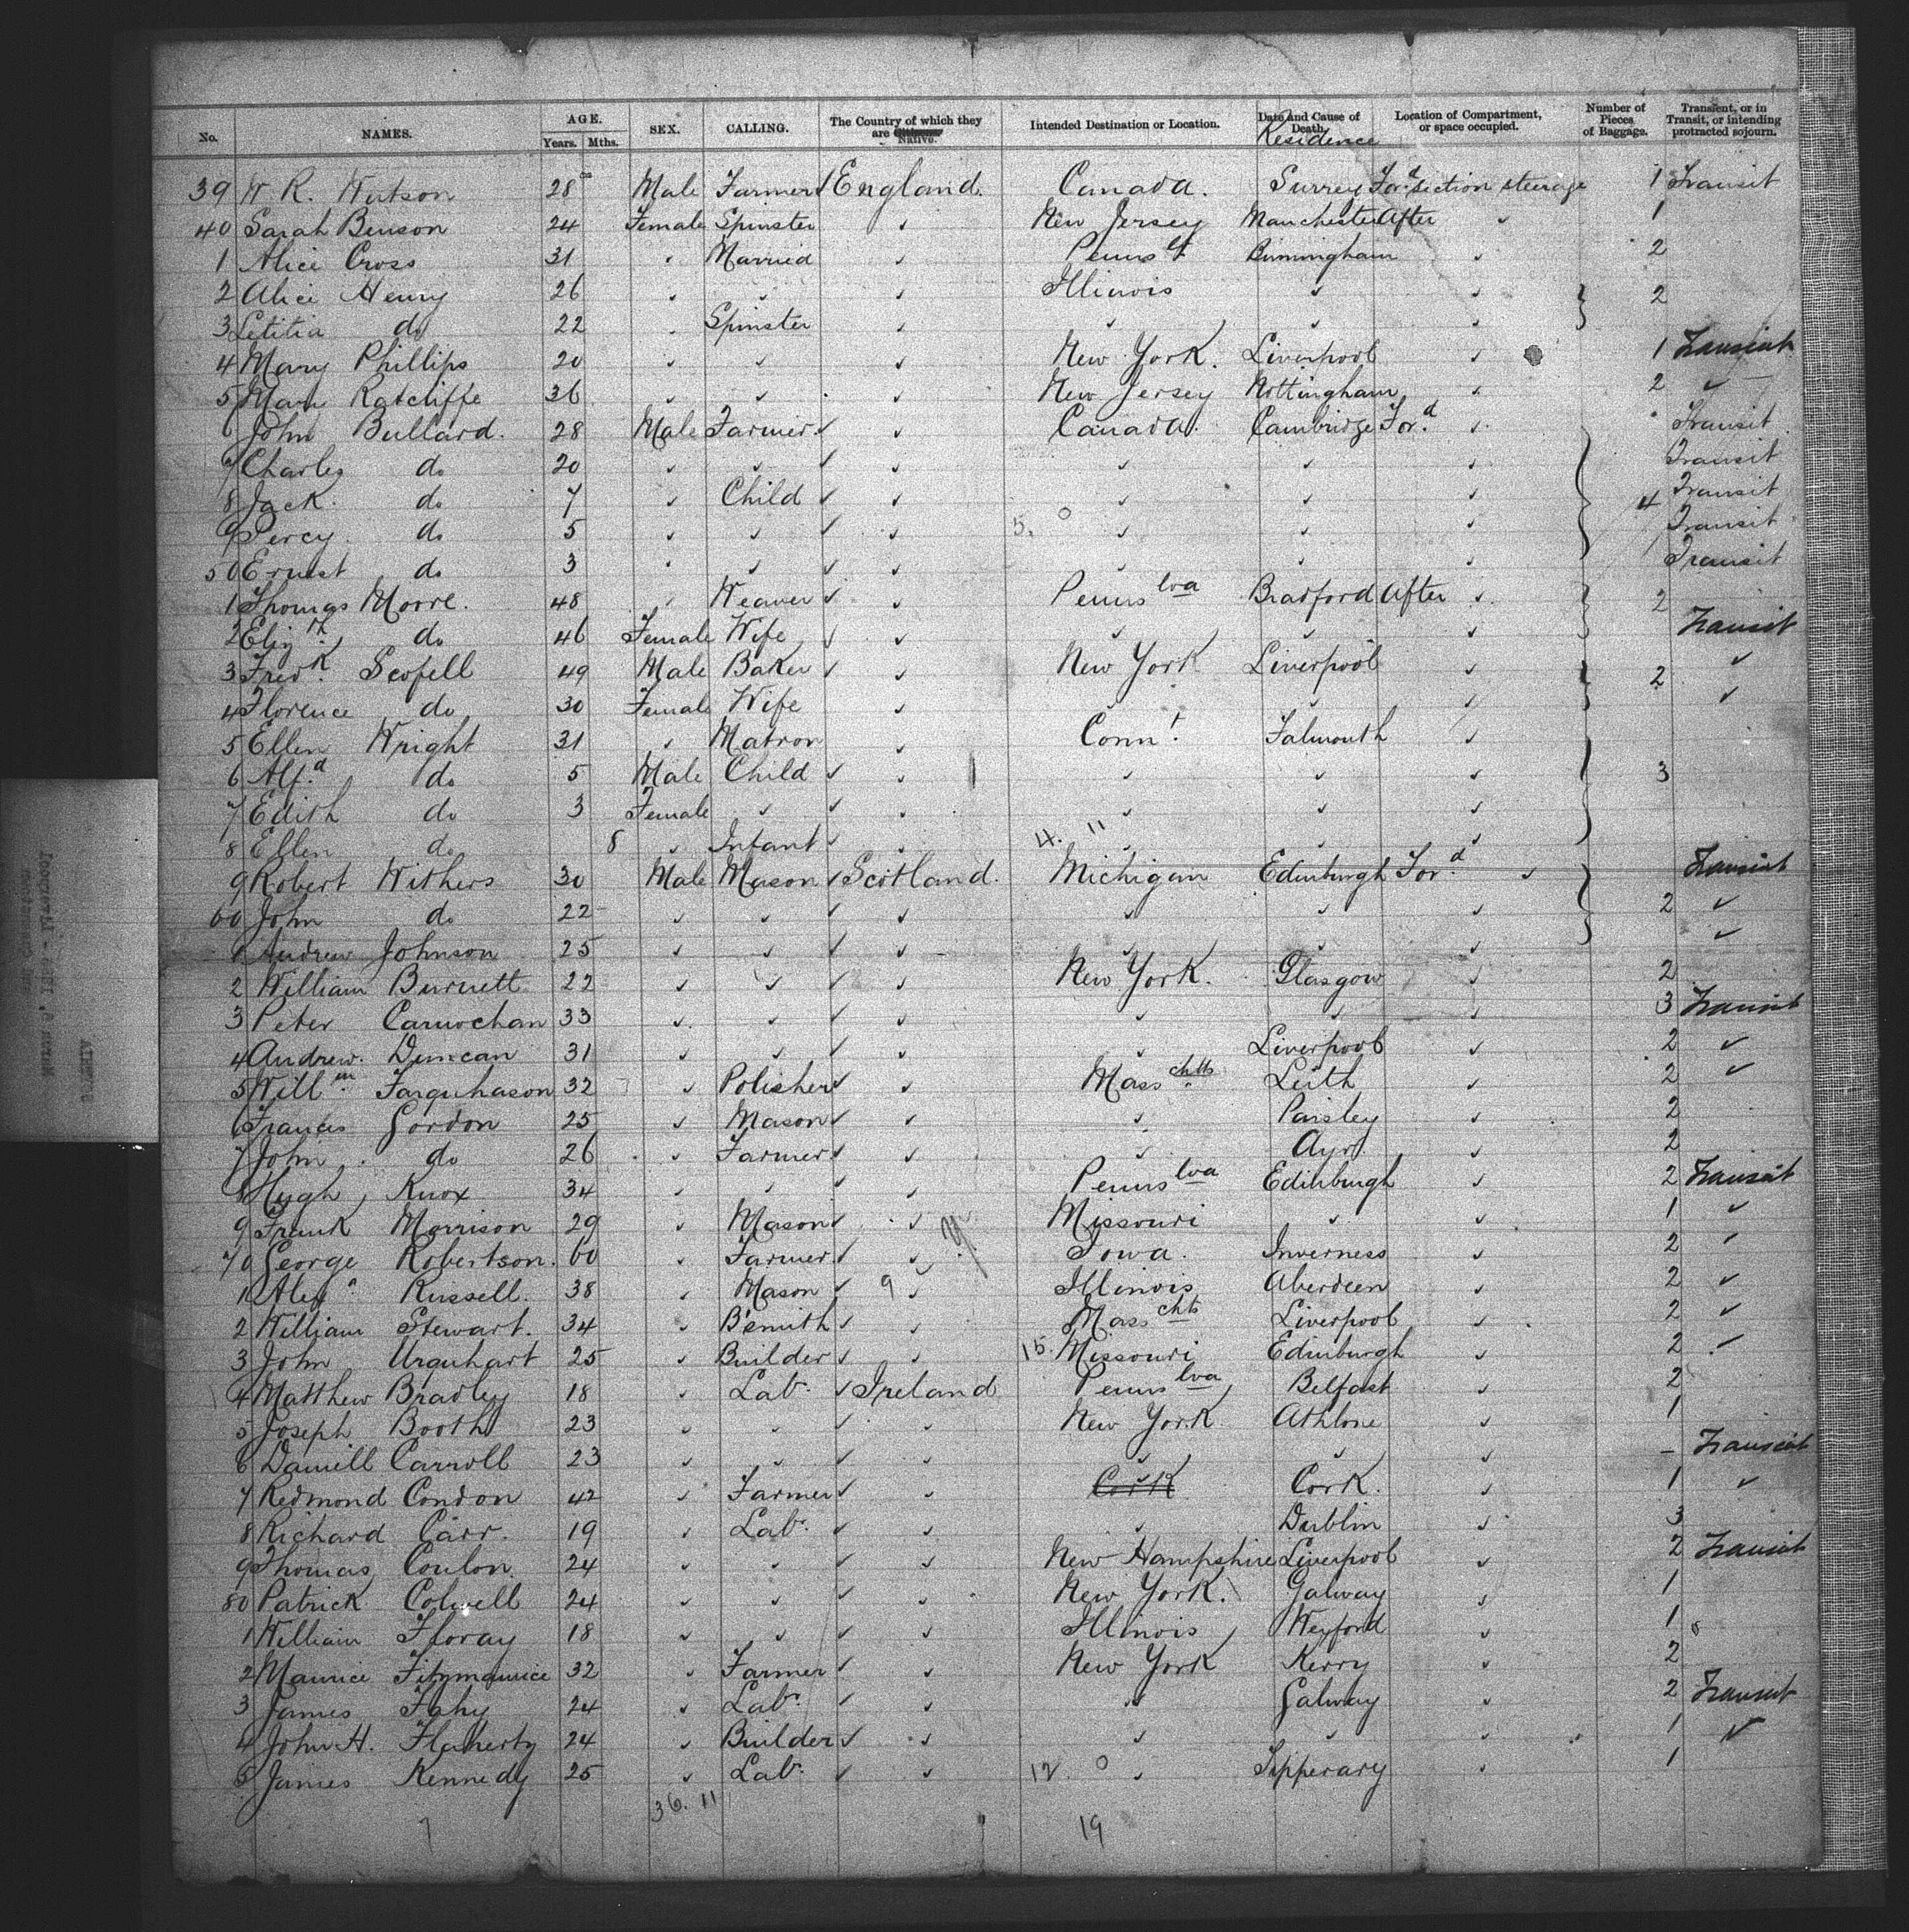 No. NAMES. AGE. Years. Mths. SEX. CALLING. The Country of which they are Citizens Native. Intended Destination or Location. Date and Cause of Death. Residence Location of Compartment, or space occupied. Number of Pieces of Baggage. Transient, or in Transit, or intending protracted sojourn.
39 W. R. Watson 28 Male Farmer England. Canada. Surrey For.d section steerage 1 Transit
40 Sarah Benson 24 Female Spinster ✓ New Jersey Manchester After ✓ 1
1 Alice Cross 31 ✓ Married ✓ Birmingham ✓ 2
2 Alice Henry 26 ✓ ✓ ✓ Illinois ✓ ✓ 2
3 Letitia do 22 ✓ Spinster ✓ ✓ ✓ ✓
4 Mary Phillips 20 ✓ ✓ ✓ New York. Liverpool ✓ 1 Transient
5 Mary Ratcliffe 36 ✓ ✓ ✓ New Jersey Nottingham ✓ 2 ✓
6 John Bullard. 28 Male Farmer ✓ ✓ Canada. Cambridge For.d ✓ Transit
7 Charles do 20 ✓ ✓ ✓ ✓ ✓ ✓ ✓ Transit
8 Jack. do 7 ✓ Child ✓ ✓ ✓ ✓ ✓ 4 Transit
9 Percy. do 5 ✓ ✓ ✓ ✓ 5. 0 ✓ ✓ ✓ Transit
50 Ernest do 3 ✓ ✓ ✓ ✓ ✓ ✓ ✓ Transit
1 Thomas Moore. 48 ✓ Weaver ✓ ✓ Pennslva Bradford After ✓ 2
2 Eliz.th do 46 Female Wife ✓ ✓ ✓ ✓ ✓ Transit
3 Fredk. Scofell 49 Male Baker ✓ ✓ New York Liverpool ✓ 2 ✓
4 Florence do 30 Female Wife ✓ ✓ ✓ ✓ ✓
5 Ellen Wright 31 ✓ Matron ✓ Connt. Falmouth ✓
6 Alf.d do 5 Male Child ✓ ✓ ✓ ✓ ✓ 3
7 Edith do 3 Female ✓ ✓ ✓ ✓ ✓ ✓
8 Ellen do 8 ✓ Infant ✓ ✓ 4. 11 ✓ ✓ ✓
9 Robert Withers 30 Male Mason ✓ Scotland. Michigan Edinburgh For.d ✓ Transit
60 John do 22 ✓ ✓ ✓ ✓ ✓ ✓ ✓ 2 ✓
1 Andrew Johnson 25 ✓ ✓ ✓ ✓ ✓ ✓ ✓ ✓
2 William Burnett 22 ✓ ✓ ✓ ✓ New York. Glasgow ✓ 2
3 Peter Carnochan 33 ✓ ✓ ✓ ✓ ✓ ✓ ✓ 3 Transit
4 Andrew. Duncan 31 ✓ ✓ ✓ ✓ ✓ Liverpool ✓ 2 ✓
5 Willm. Farquhason 32 ✓ Polisher ✓ ✓ Masschtts Leith ✓ 2 ✓
6 Francis Gordon 25 ✓ Mason ✓ ✓ ✓ Paisley ✓ 2
7 John do 26 ✓ Farmer ✓ ✓ ✓ Ayr ✓ 2
8 Hugh Knox 34 ✓ ✓ ✓ ✓ Pennslva Edinburgh ✓ 2 Transit
9 Frank Morrison 29 ✓ Mason ✓ ✓ Missouri ✓ ✓ 1 ✓
70 George Robertson. 60 ✓ Farmer ✓ ✓ Iowa. Inverness ✓ 2 ✓
1 Alexr. Russell. 38 ✓ Mason ✓ 9 ✓ Illinois Aberdeen ✓ 2 ✓
2 William Stewart. 34 ✓ B'smith ✓ ✓ Masscht Liverpool ✓ 2 ✓
3 John Urquhart 25 ✓ Builder ✓ ✓ 15. Missouri Edinburgh ✓ 2 ✓
4 Matthew Bradley 18 ✓ Labr. ✓ Ireland Pennslva Belfast ✓ 2
5 Joseph Booth 23 ✓ ✓ ✓ ✓ New York. Athlone ✓ 1
6 Daniell Carroll 23 ✓ ✓ ✓ ✓ ✓ ✓ ✓ – Transient
7 Redmond Condon 42 ✓ Farmer ✓ ✓ Cork Cork. ✓ 1 ✓
8 Richard Carr. 19 ✓ Labr. ✓ ✓ ✓ Dublin ✓ 3
9 Thomas Conlon. 24 ✓ ✓ ✓ ✓ New Hampshire Liverpool ✓ 2 Transit
80 Patrick Colwell 24 ✓ ✓ ✓ ✓ New York. Galway ✓ 1
1 William Floray 18 ✓ ✓ ✓ ✓ Illinois Wexford ✓ 1
2 Maurice Fitzmaurice 32 ✓ Farmer ✓ ✓ New York Kerry ✓ 2
3 James Fahy 24 ✓ Labr. ✓ ✓ ✓ Galway ✓ 2 Transit
4 John H. Flaherty 24 ✓ Builder ✓ ✓ ✓ ✓ ✓ 1 ✓
5 James Kennedy 25 ✓ Labr. ✓ ✓ 12. 0 ✓ Tipperary ✓ 1
36. 11
19